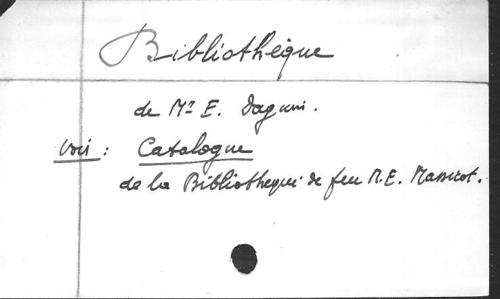 Bibliothèque
de Mr E. Daguin.
Voir : Catalogue
de la Bibliothèque de feu M.E.